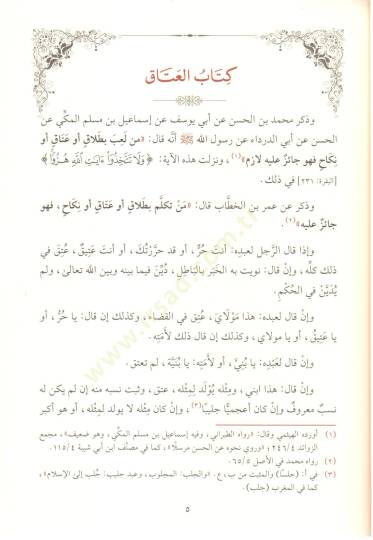 كِتَابُ العَتَاق
وذكر محمد بن الحسن عن أبي يوسف عن إسماعيل بن مسلم المكِّي عن
الحسن عن أبي الدرداء عن رسول الله ﷺ أنَّه قال: «من لَعِبَ بطَلَاقٍ أو عَتَاقٍ أو
نِكاحٍ فهو جائزٌ عليه لازم»(١)، ونزلت هذه الآية: ﴿وَلَا تَتَّخِذُوٓا۟ ءَايَـٰتِ ٱللَّهِ هُزُوًا﴾
[البقرة: ٢٣١] في ذلك.
وذكر عن عمر بن الخطَّاب قال: «مَنْ تكلَّم بطَلَاقٍ أو عَتَاقٍ أو نِكاحٍ، فهو
جائزٌ عليه»(٢).
وإذا قال الرَّجل لعبده: أنتَ حُرٌّ، أو قد حرَّرْتُكَ، أو أنتَ عَتِيقٌ، عَتَقَ في
ذلك كلِّه، وإنْ قال: نويت به الخَبَر بالباطِلِ، دُيِّنَ فيما بينه وبين الله تعالى، ولم
يُدَيَّنْ في الحُكْم.
وإن قال لعبده: هذا مَوْلَايَ، عَتَقَ في القضاء، وكذلك إن قال: يا حُرُّ، أو
يا عَتِيقُ، أو يا مولاي، وكذلك إن قال ذلك لأمَتِه.
وإن قال لعَبْدِه: يا بُنَيَّ، أو لأَمَتِه: يا بُنَيَّة، لم تعتق.
وإن قال: هذا ابني، ومِثْله يُوْلَد لِمِثْله، عتق، وثبت نسبه منه إن لم يكن له
نسبٌ معروفٌ وإنْ كان أعجميًّا جلبًا(٣)، وإن كان مِثْله لا يولد لمِثْله، أو هو أكبر
(١) أورده الهيثمي وقال: «رواه الطبراني، وفيه إسماعيل بن مسلم المكِّي، وهو ضعيف»، مجمع
الزوائد ٢٤٦/٤؛ «وروي نحوه عن الحسن مرسلًا»، كما في مصنَّف ابن أبي شيبة ١١٥/٤.
(٢) رواه محمد في الأصل ٦٥/٥.
(٣) في أ: (جلسًا) والمثبت من ب، ع. «والجلب: المجلوب، وعبد جليب: جُلب إلى الإسلام»،
كما في المغرب (جلب).
٥